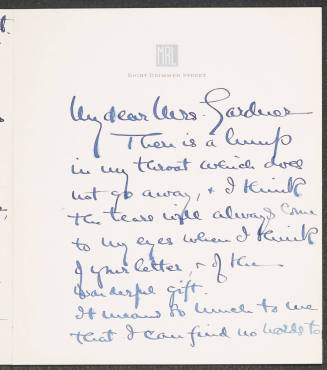 MRL
EIGHT BRIMMER STREET
My dear Mrs. Gardner
There is a lump
in my throat which does
not go away, & I think
the tears will always come
to my eyes when I think
of your letter, & of the
wonderful gift.
It means so much to me
that I can find no words to